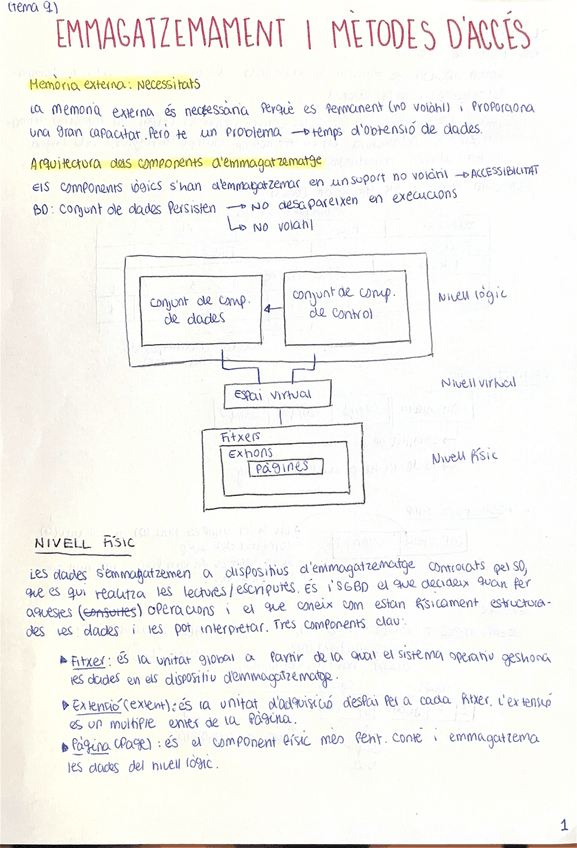 (Tema 9)
EMMAGATZEMAMENT I MÈTODES D'ACCÉS
Memòria externa: Necessitats
La memoria externa és necessària perquè es permanent (no volàtil) i proporciona
una gran capacitat. Però te un problema → temps d'obtensió de dades.
Arquitectura dels components d'emmagatzematge
Els components lògics s'han d'emmagatzemar en un suport no volàtil → ACCESSIBILITAT
BD: Conjunt de dades persisten → No desapareixen en execucions
↳ No volàtil
conjunt de comp. de dades
conjunt de comp. de control
Nivell lògic
Nivell virtual
Espai virtual
Fitxers
Extions
Pàgines
Nivell físic
NIVELL FÍSIC
Les dades s'emmagatzemen a dispositius d'emmagatzematge controlats pel SO,
que es qui realitza les lectures/escriptures. És l'SGBD el que decideix quan fer
aquestes (consultes) operacions i el que coneix com estan físicament estructura-
des les dades i les pot interpretar. Tres components clau:
▸ Fitxer: és la unitat global a partir de la qual el sistema operatiu gestiona
les dades en els dispositiu d'emmagatzematge.
▸ Extensió (extent): és la unitat d'adquisició d'espai per a cada fitxer. L'extensió
és un multiple enter de la pàgina.
▸ Pàgina (Page): és el component físic més petit. Conté i emmagatzema
les dades del nivell lògic.
1